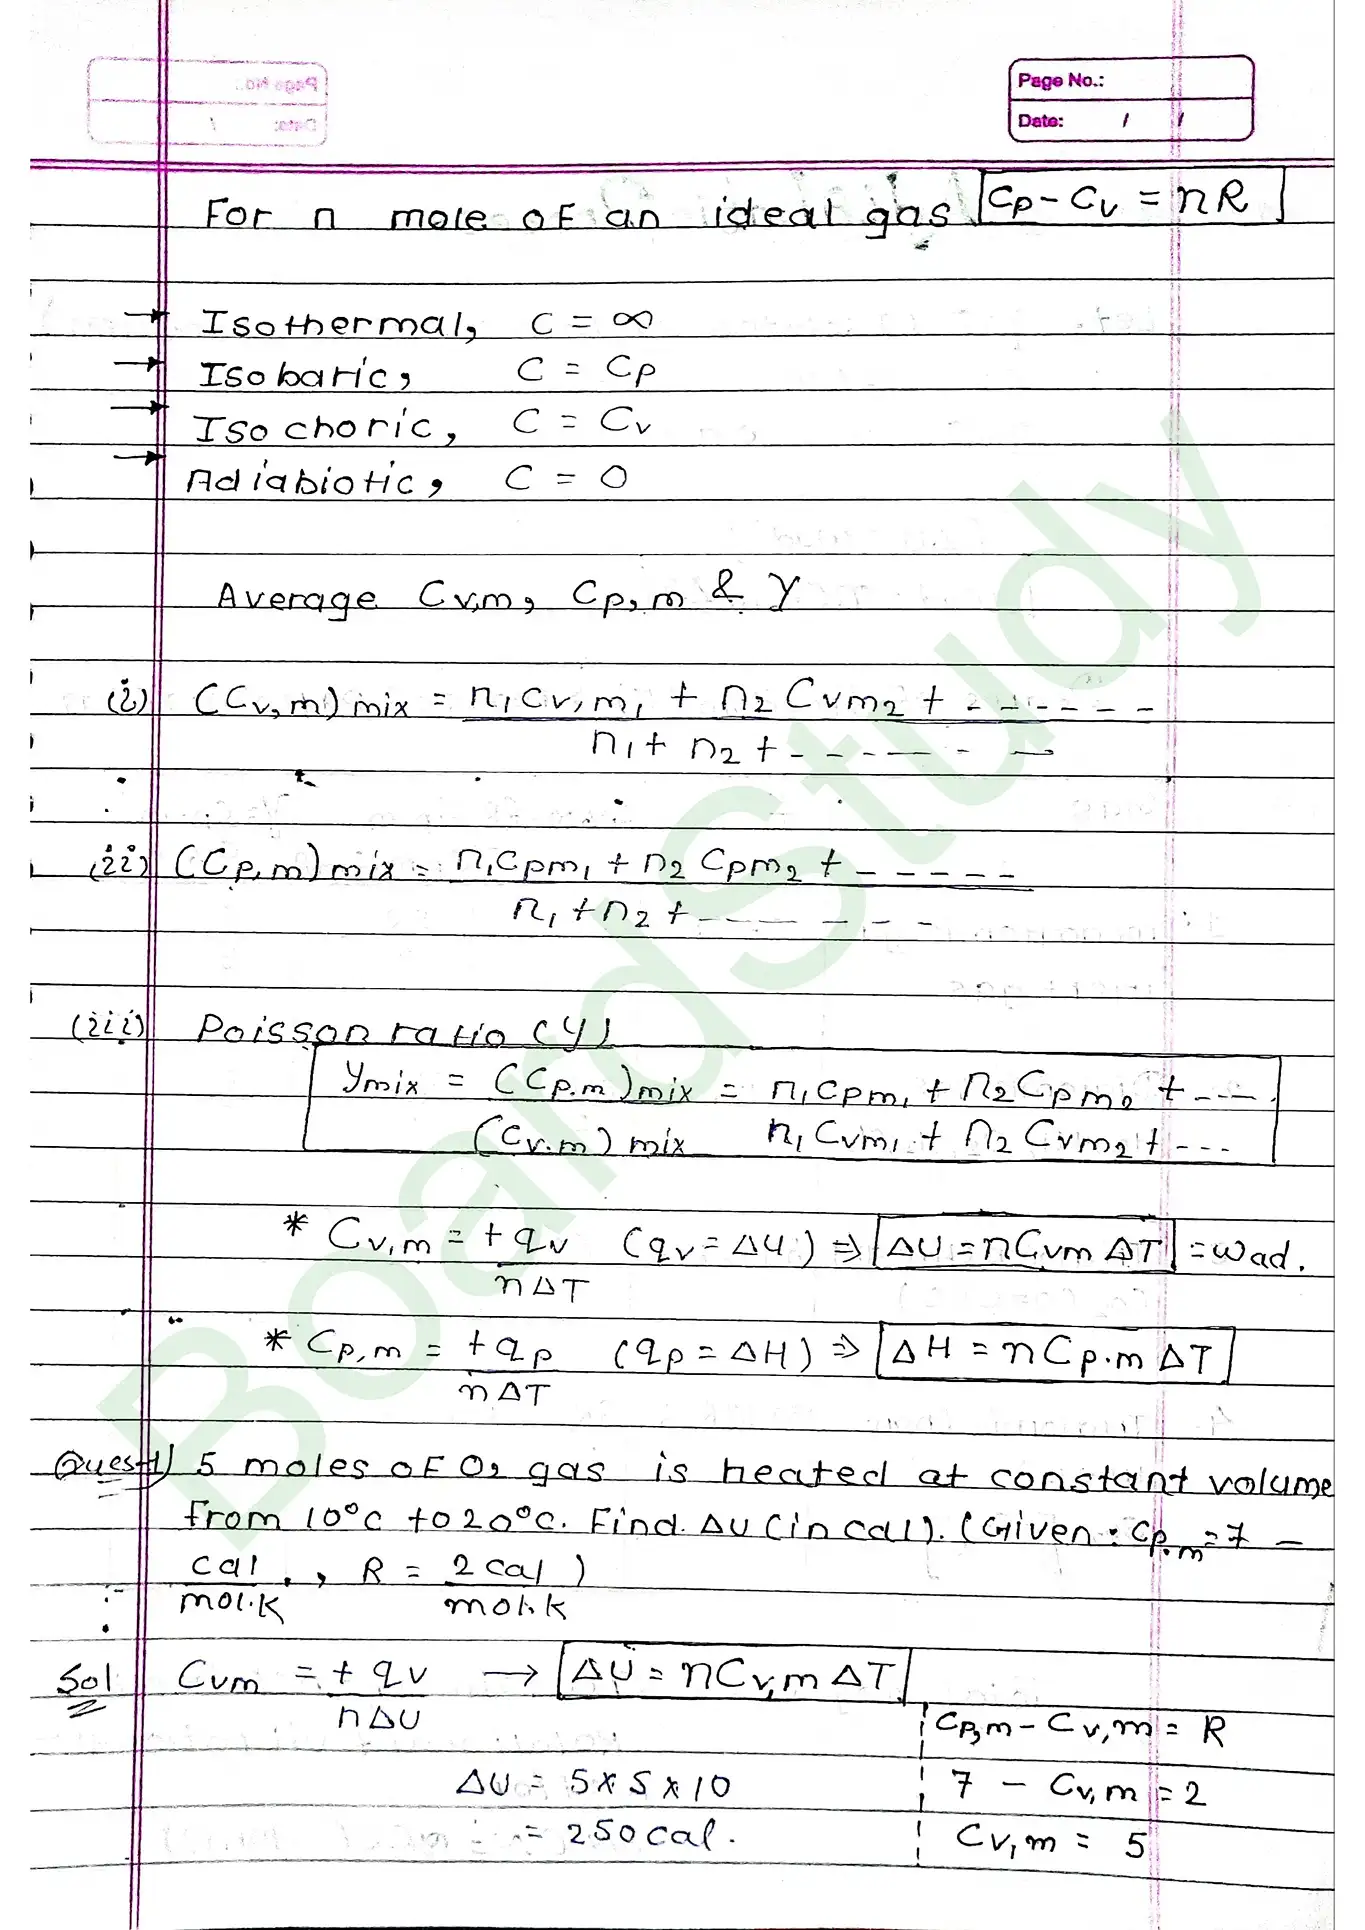 Page No.:
Date: / /
For n mole of an ideal gas Cp - Cv = nR
→ Isothermal, C = ∞
→ Isobaric, C = Cp
→ Isochoric, C = Cv
→ Adiabiotic, C = 0
Average Cv,m, Cp,m & γ
(i) (Cv,m) mix = n1Cv,m1 + n2 Cvm2 + ------
n1 + n2 + ------
(ii) (Cp,m) mix = n1Cpm1 + n2 Cpm2 + -----
n1 + n2 + ------
(iii) Poisson ratio (γ)
γmix = (Cp.m)mix = n1Cpm1 + n2Cpm2 + ---.
(Cv.m) mix n1Cvm1 + n2 Cvm2 + ---
* Cv,m = + qv (qv = ΔU) ⇒ ΔU = nCvm ΔT = wad.
nΔT
* Cp,m = + qp (qp = ΔH) ⇒ ΔH = nCp.m ΔT
nΔT
Ques-1) 5 moles of O2 gas is heated at constant volume
from 10°C to 20°C. Find ΔU (in cal). (Given : Cp.m = 7 -
cal , R = 2 cal )
mol.K mol.K
Sol Cvm = + qv → ΔU = nCv,m ΔT
nΔU
Cp,m - Cv,m = R
ΔU = 5 × 5 × 10 7 - Cv,m = 2
= 250 cal. Cv,m = 5
BoardStudy